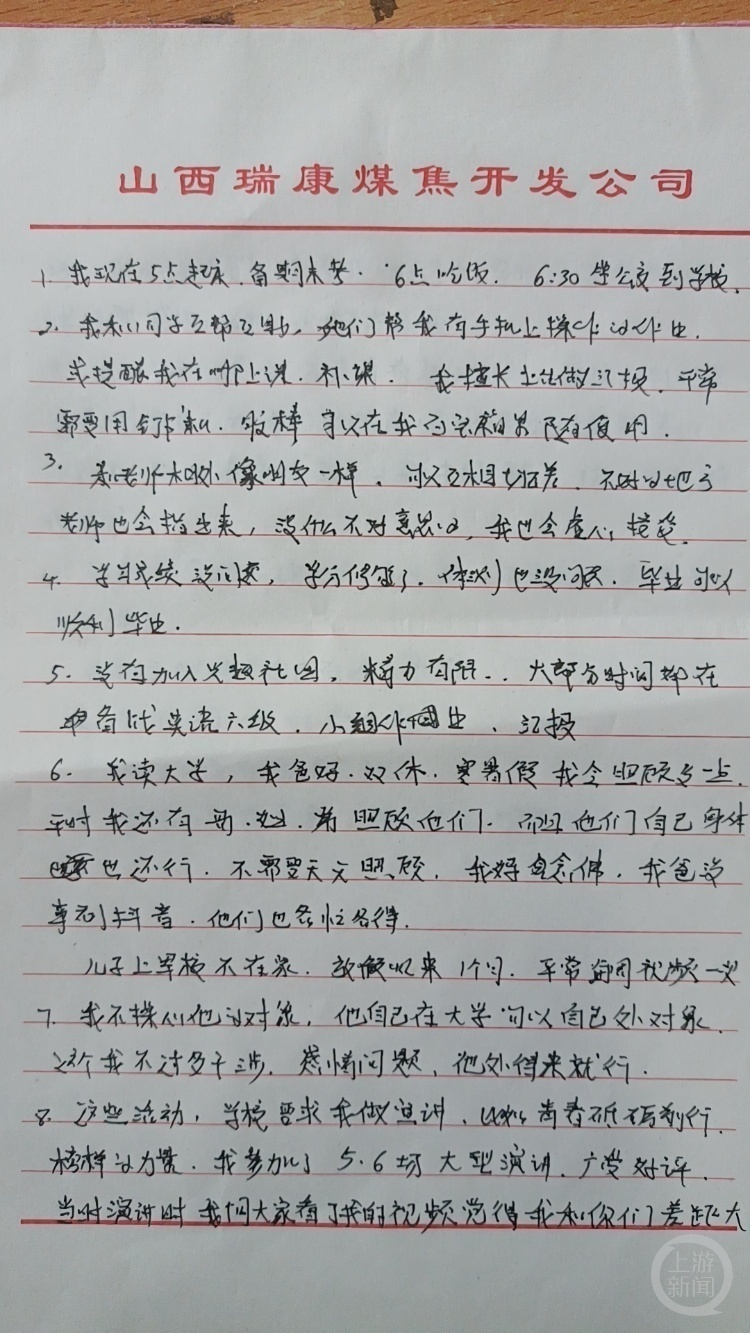 山西瑞康煤焦开发公司
1. 我现在5点起床.备期末考.6点吃饭. 6:30坐公交到学校.
2. 我和同学互帮互助,她们帮我在手机上操作的作业.
或提醒我在哪上课.补课. 我擅长上台做汇报.平常
需要用钉. 胶棒 可以在我的里随便用.
3. 和老师相处像朋友一样.可以互相. 不对的地方
老师也会指出来,没什么不好意思的,我也会虚心接受.
4. 学习成绩没问题,学分修够了.体测也没问题.毕业可以
顺利毕业.
5. 没有加入兴趣社团,精力有限..大部分时间都在
备战英语六级.小组作业、汇报
6. 我读大学,我爸妈.双休.寒暑假我会照顾多一点.
平时我还有哥.姐.弟照顾他们.而且他们自己身体
也还行.不需要天天照顾,我妈念佛.我爸没
事刷抖音.他们也各忙各得.
儿子上军校不在家.放假回来1个月.平常每周视频一次
7. 我不操心他的对象,他自己在大学可以自己处对象.
这个我不过多干涉.感情问题,他处得来就行.
8. 这些活动,学校要求我做演讲.以青春砥砺前行.
榜样的力量.我参加了5.6场大型演讲.广受好评.
当时演讲时我问大家看了我的视频觉得我和你们差距大
上游新闻